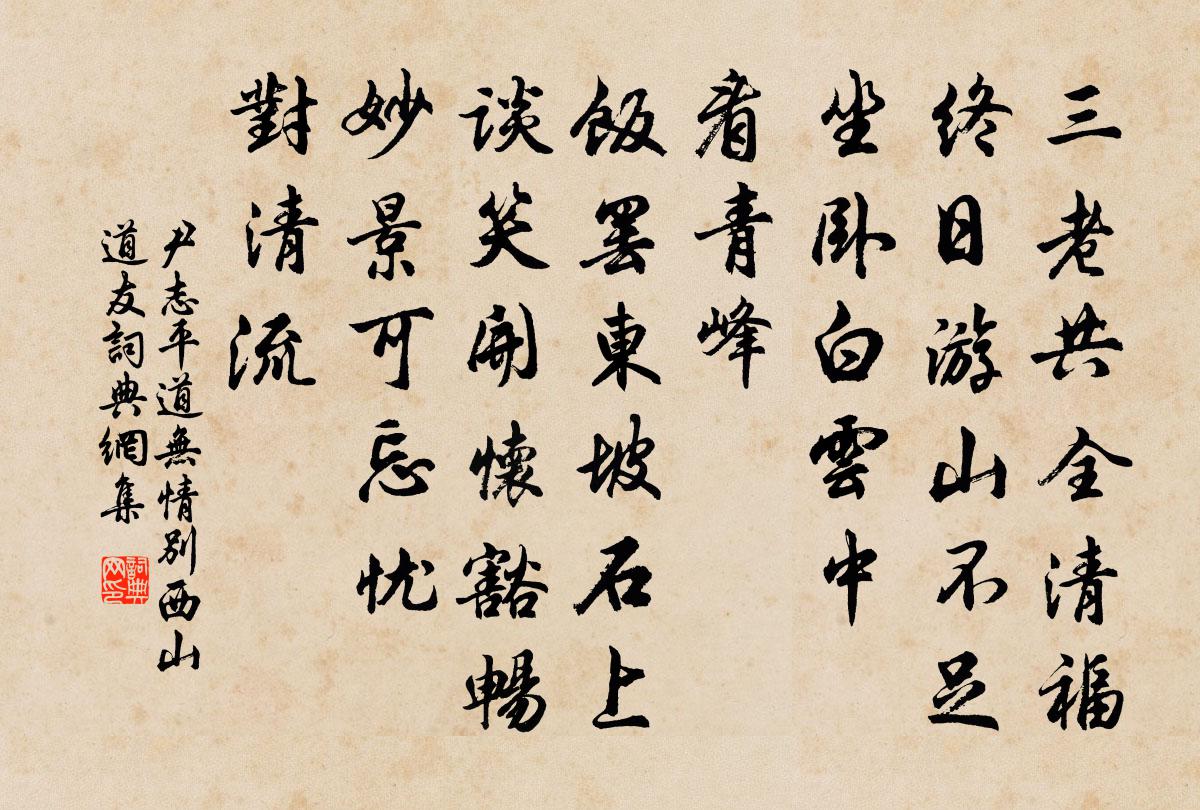 三老共全清福
終日游山不足
坐卧白雲中
看青峰
飯罢東坡石上
談笑開懷豁暢
妙景可忘忧
對清流
尹志平道無情別西山
道友詞典網集
詞典
网印